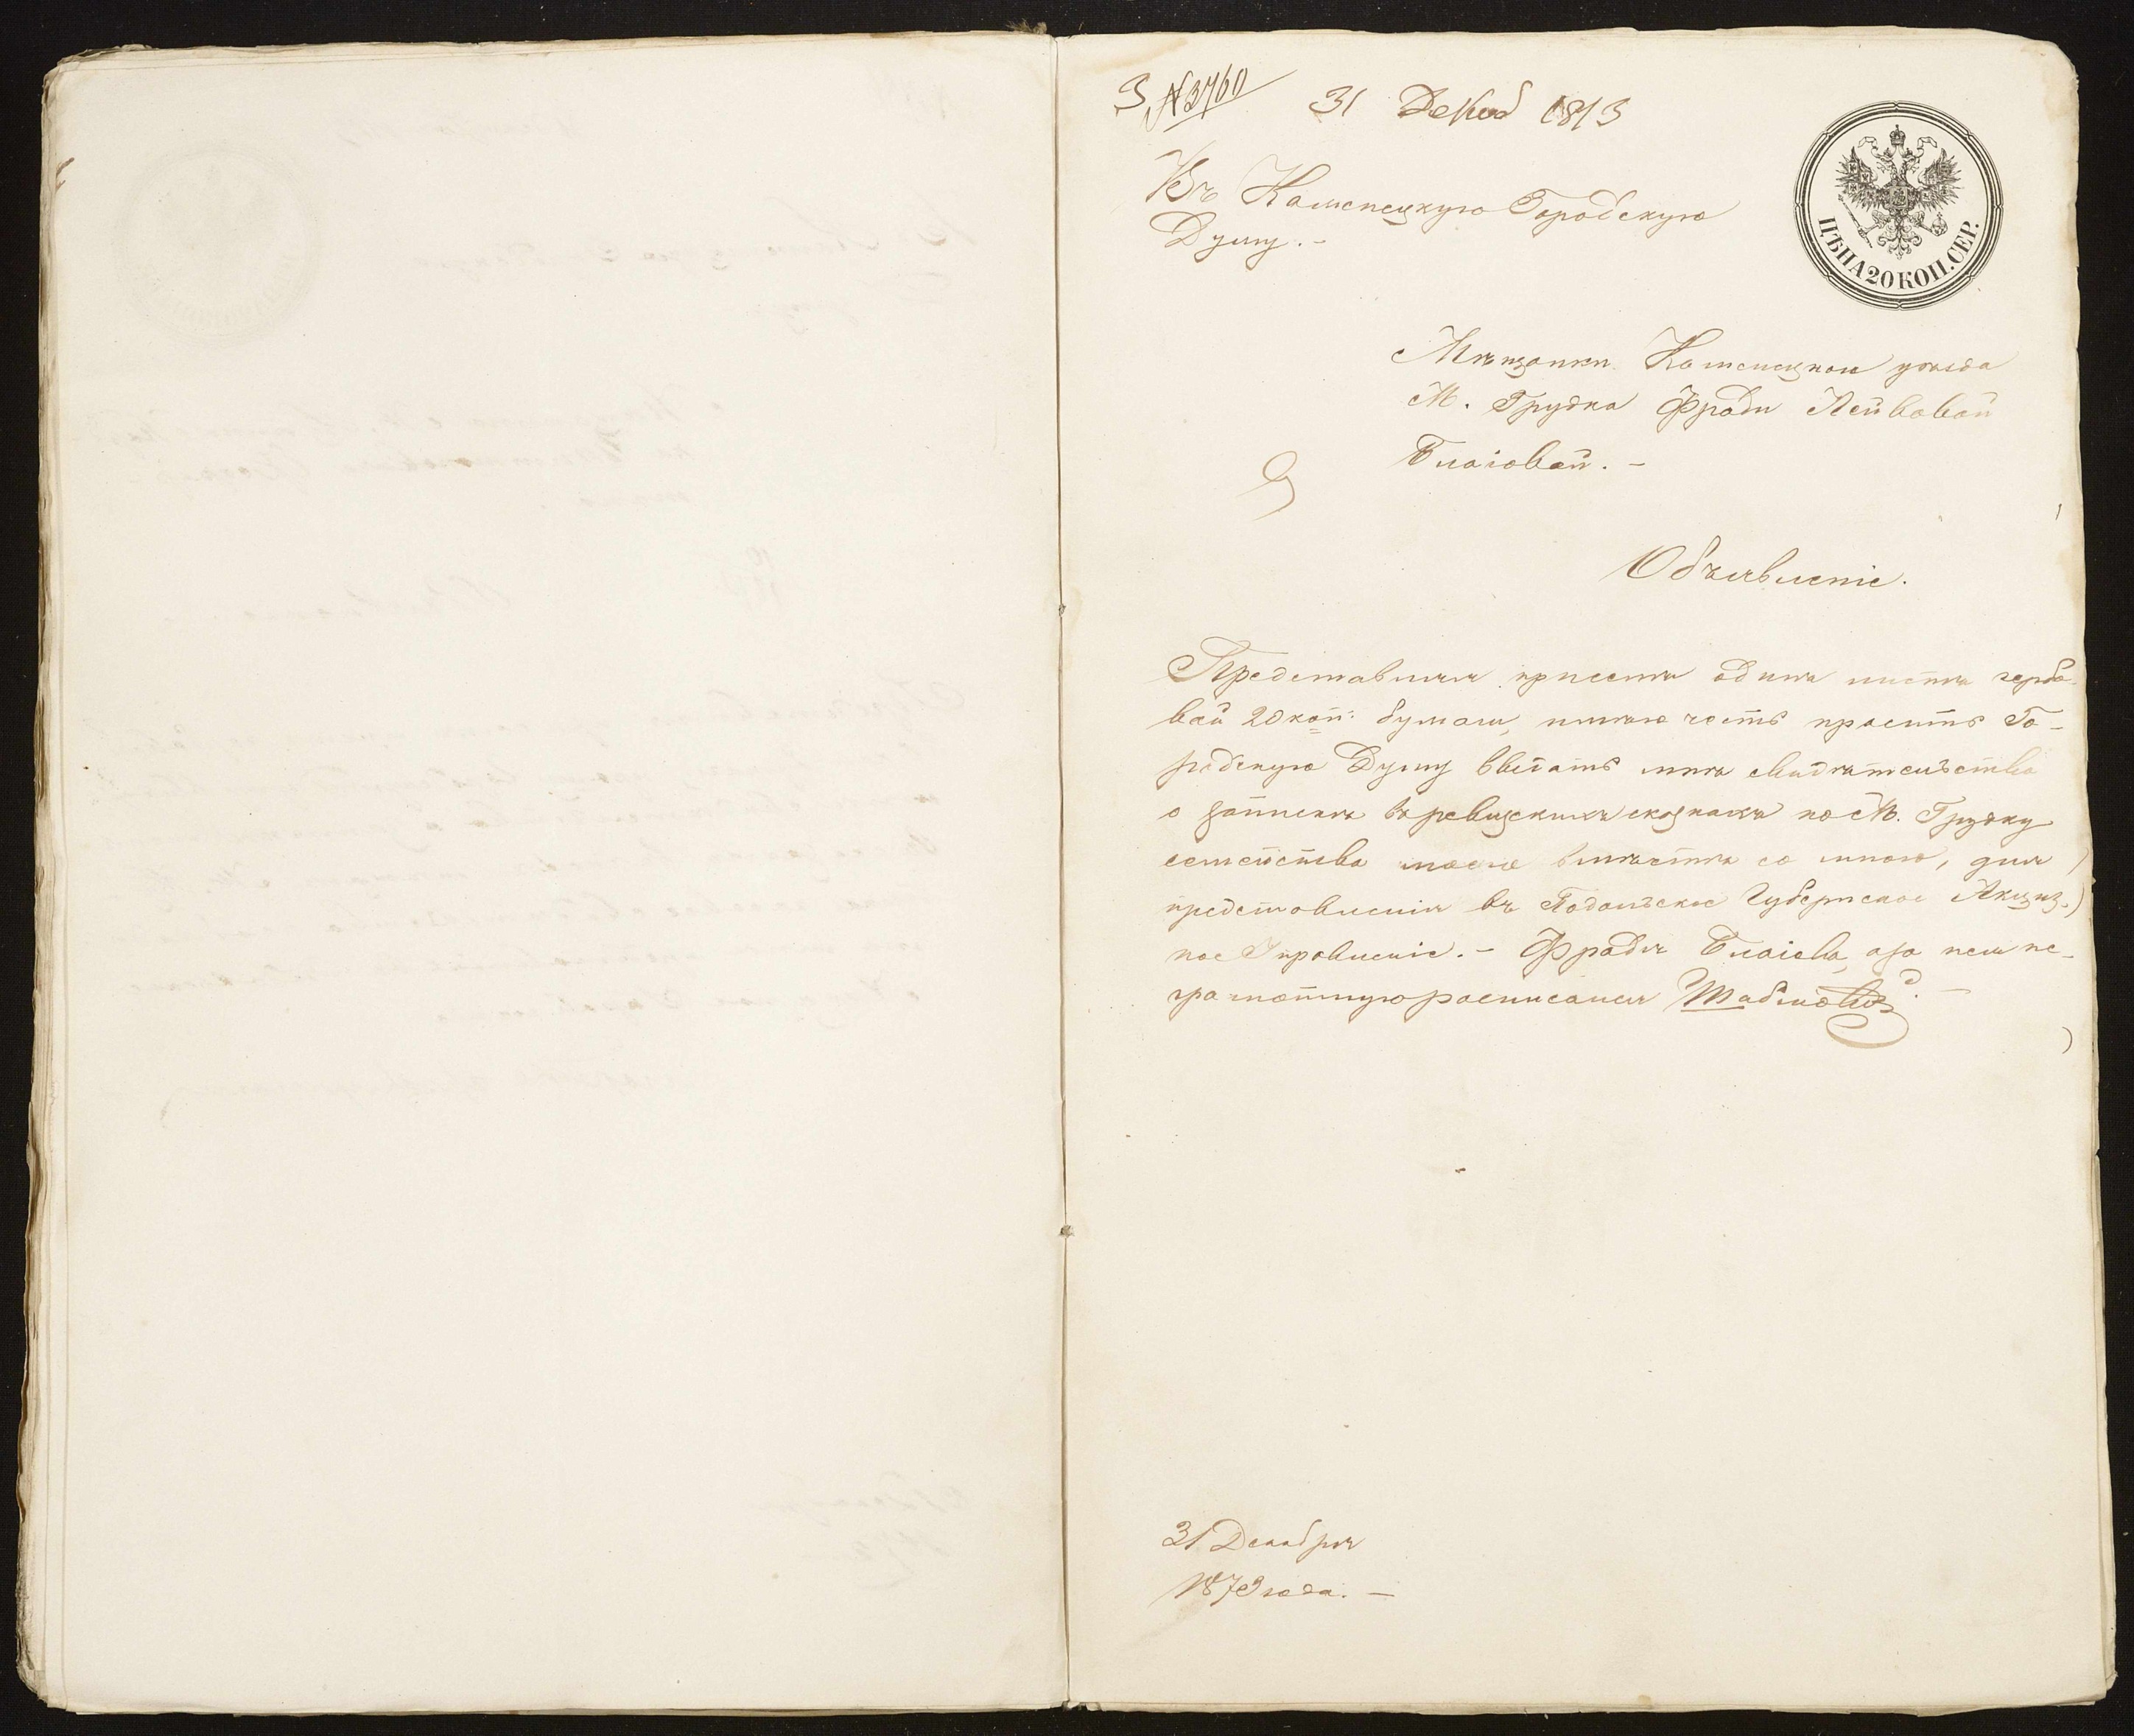 3 №3760 31 Декаб 1873
Въ Каменецкую Городскую
Думу. -
ЦѢНА 20 КОП. СЕР.
Мѣщанки Каменецкаго уѣзда
М. Грудка Фради Лейбовой
Благовой. -
Объявленіе.
Представляя присемъ одинъ листъ гербо-
вой 20 коп: бумаги, имѣю честь просить Го-
родскую Думу выдать мнѣ свидѣтельство
о запискѣ въ ревизскихъ сказкахъ по М. Грудку
семейства моего вмѣстѣ со мною, для
представленія въ Подольское Губернское Акциз-
ное Управленіе. - Фрадя Блаіова, а за нею не-
грамотную росписался
31 Декабря
1873 года. -